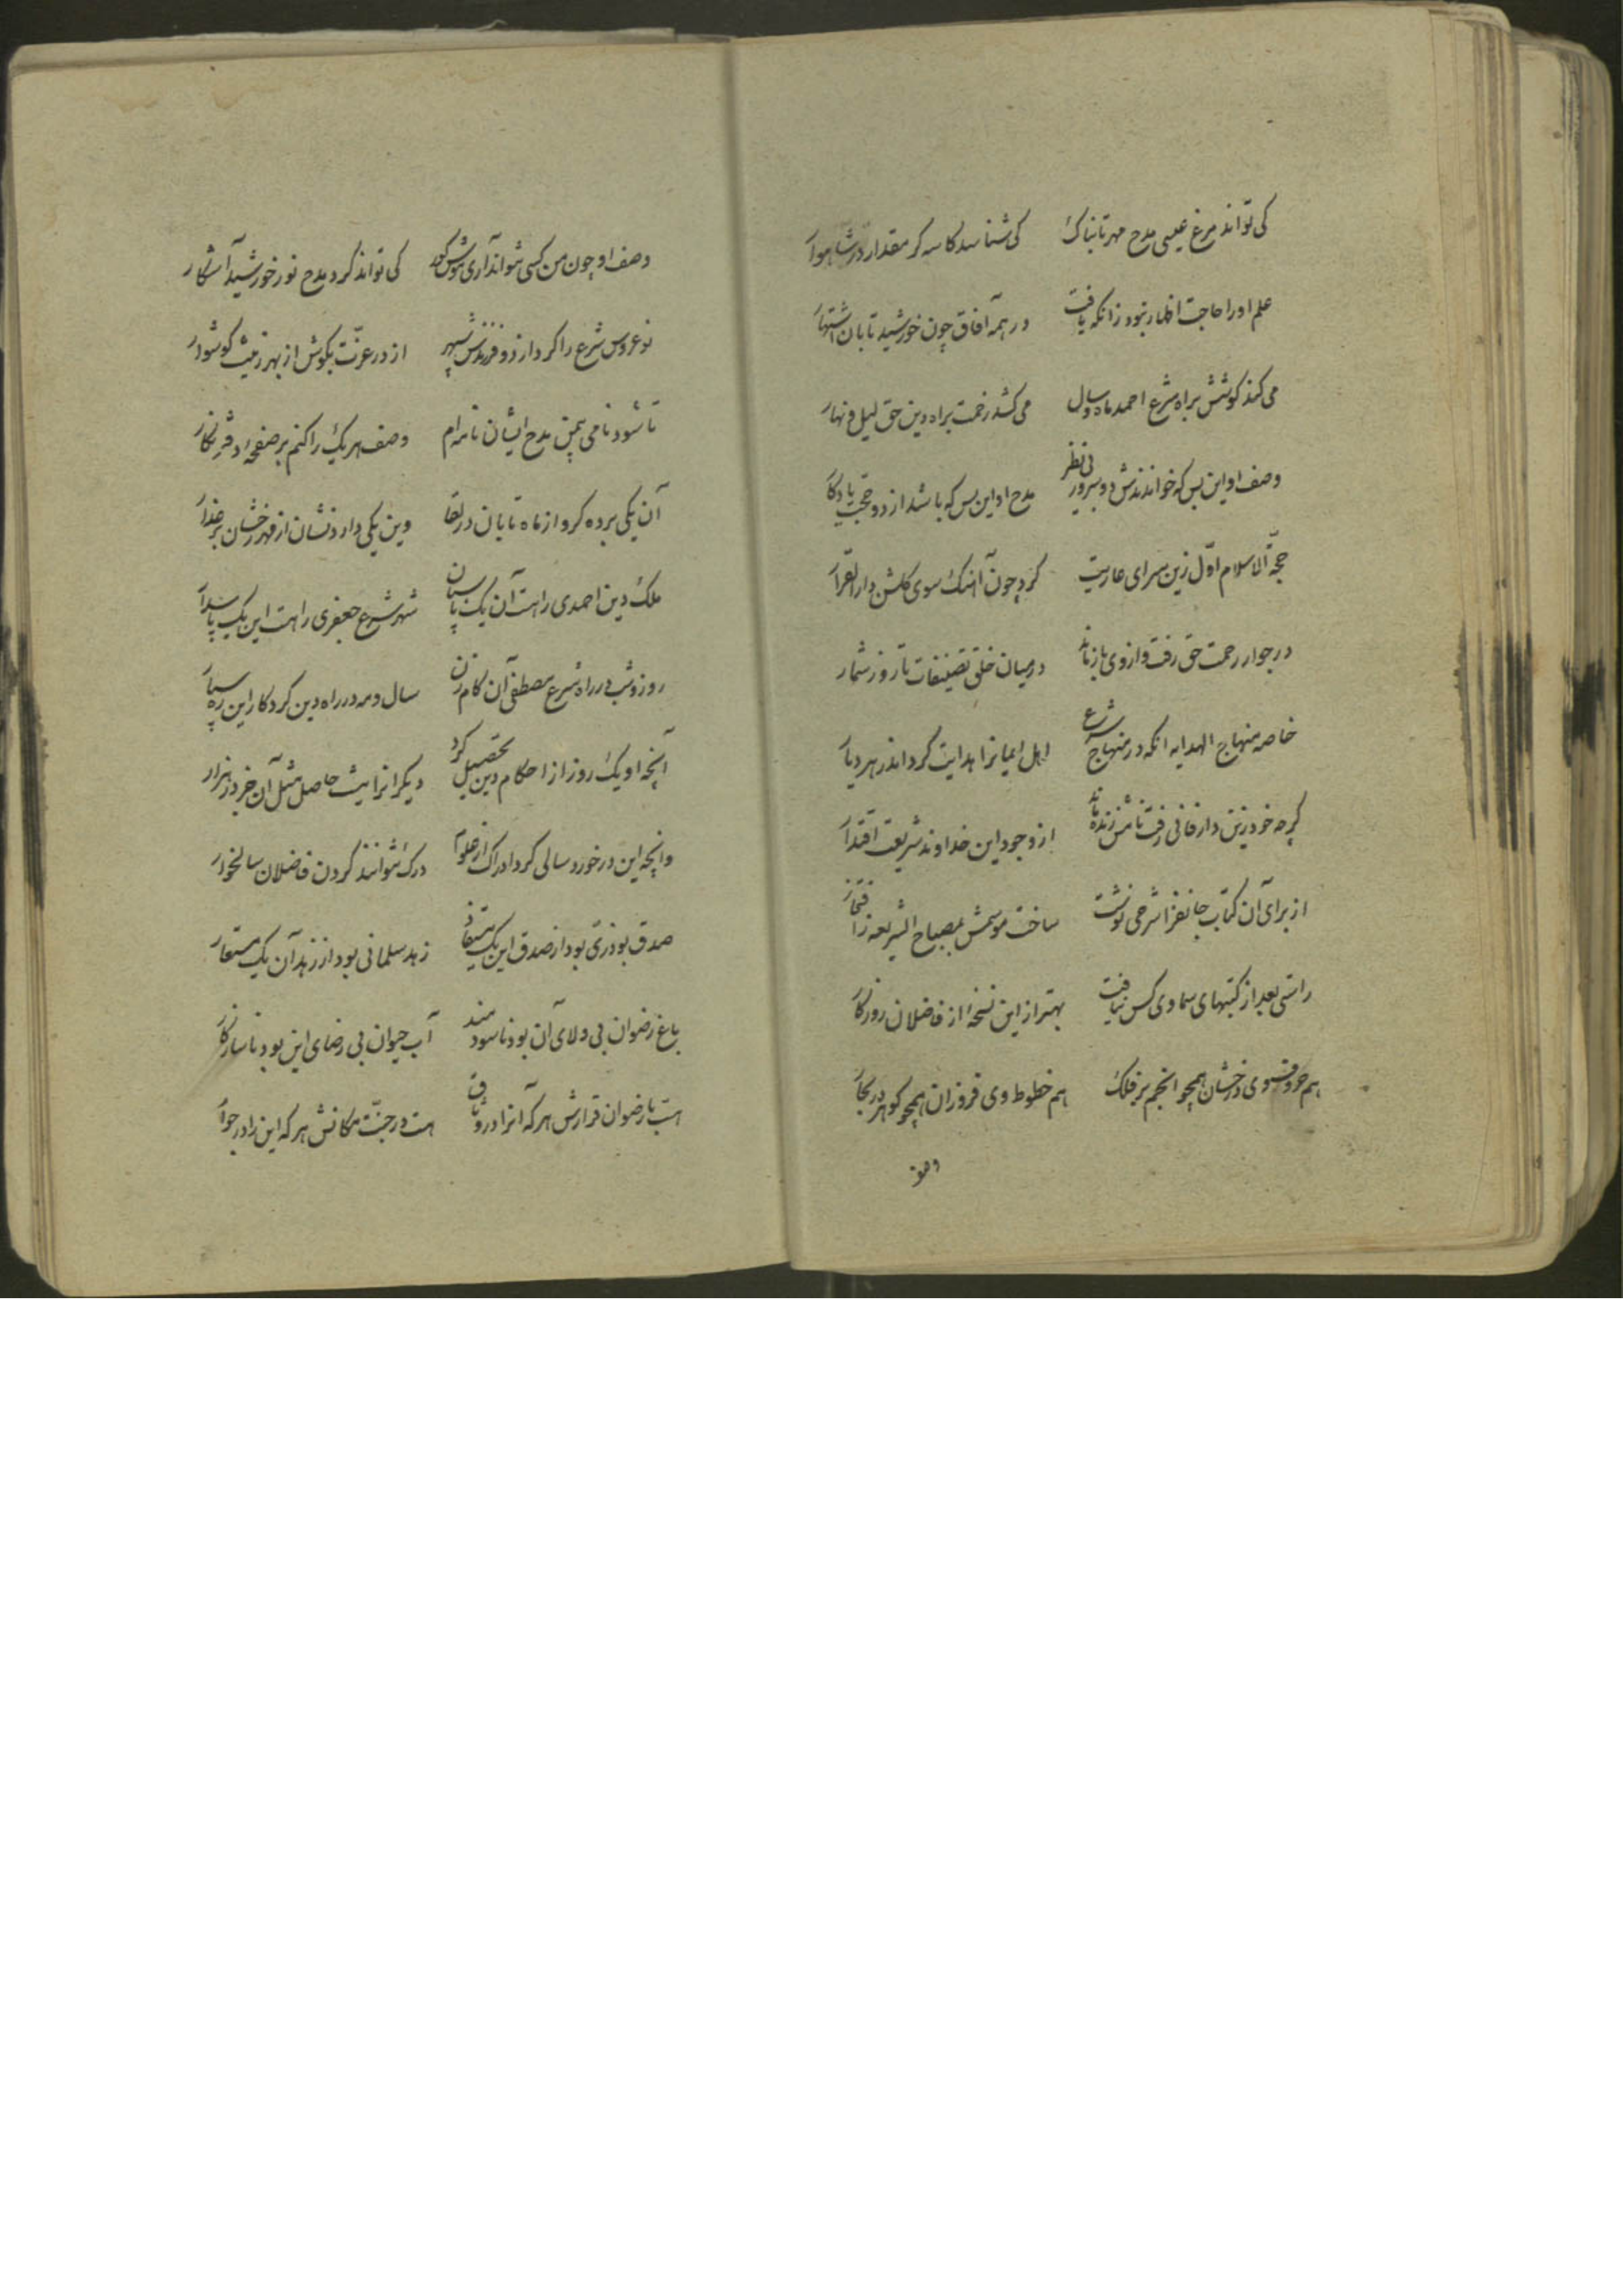 کی تواند مرغ عیسی مدح مهر تابناک کی شناسد کاسه گر مقدار در شاهوار
علم او را حاجت اظهار نبود زانکه یافت در همه آفاق چون خورشید تابان اشتهار
می کند کوشش براه شرع احمد ماه و سال می کشد زحمت براه دین حق لیل و نهار
وصف او این بس که خوانندش دو سرور بی نظر مدح او این بس که باشد از دو حجت یادکار
حجة الاسلام اول زین سرای عاریت کرد چون آهنک سوی کلشن دار القرار
در جوار رحمت حق رفت و از وی باز ماند در میان خلق تصنیفات تا روز شمار
خاصه منهاج الهدایه انکه در منهاج شرع اهل ایمانرا هدایت کرد اندر هر دیار
کرچه خود زین دار فانی رفت نامش زنده ماند از وجود این خداوند شریعت اقتدار
از برای آن کتاب جانفزا شرحی نوشت ساخت موسمش بمصباح الشریعه ز افتخار
راستی بعد از کتبهای سماوی کس نیافت بهتر از این نسخه از فاضلان روزکار
هم حروف وی درخشان همچو انجم بر فلک هم خطوط وی فروزان همچو کوهر در بحار
وصف
وصف او چون من کسی نتواند آری موش کور کی تواند کرد مدح نور خورشید آشکار
نو عروس شرع را کرد از دو فرزندش سپهر از در عزت بکوش از بهر زینت کوشوار
تا شود نامی بیمن مدح ایشان نامه ام وصف هر یک را کنم بر صفحه دفتر نکار
آن یکی برده کرو از ماه تابان در لقا وین یکی دارد نشان از مهر رخشان بر عذار
ملک دین احمدی را هست آن یک پاسبان شهر شرع جعفری را هست این یک پاسدار
روز و شب در راه شرع مصطفی آن کام زن سال و مه در راه دین کردکار این ره سپار
آنچه او یک روز از احکام دین تحصیل کرد دیکرانرا نیست حاصل مثل آن جز در هزار
وانچه این در خورد سالی کرد ادراک از علوم درک نتوانند کردن فاضلان سالخوار
صدق بوذری بود از صدق این یک مستفاد زهد سلمانی بود از زهد آن یک مستعار
باغ رضوان بی ولای آن بود ناسودمند آب حیوان بی رضای این بود ناسازکار
هست با رضوان قرارش هر که آنرا در وثاق هست در جنت مکانش هر که این را در جوار